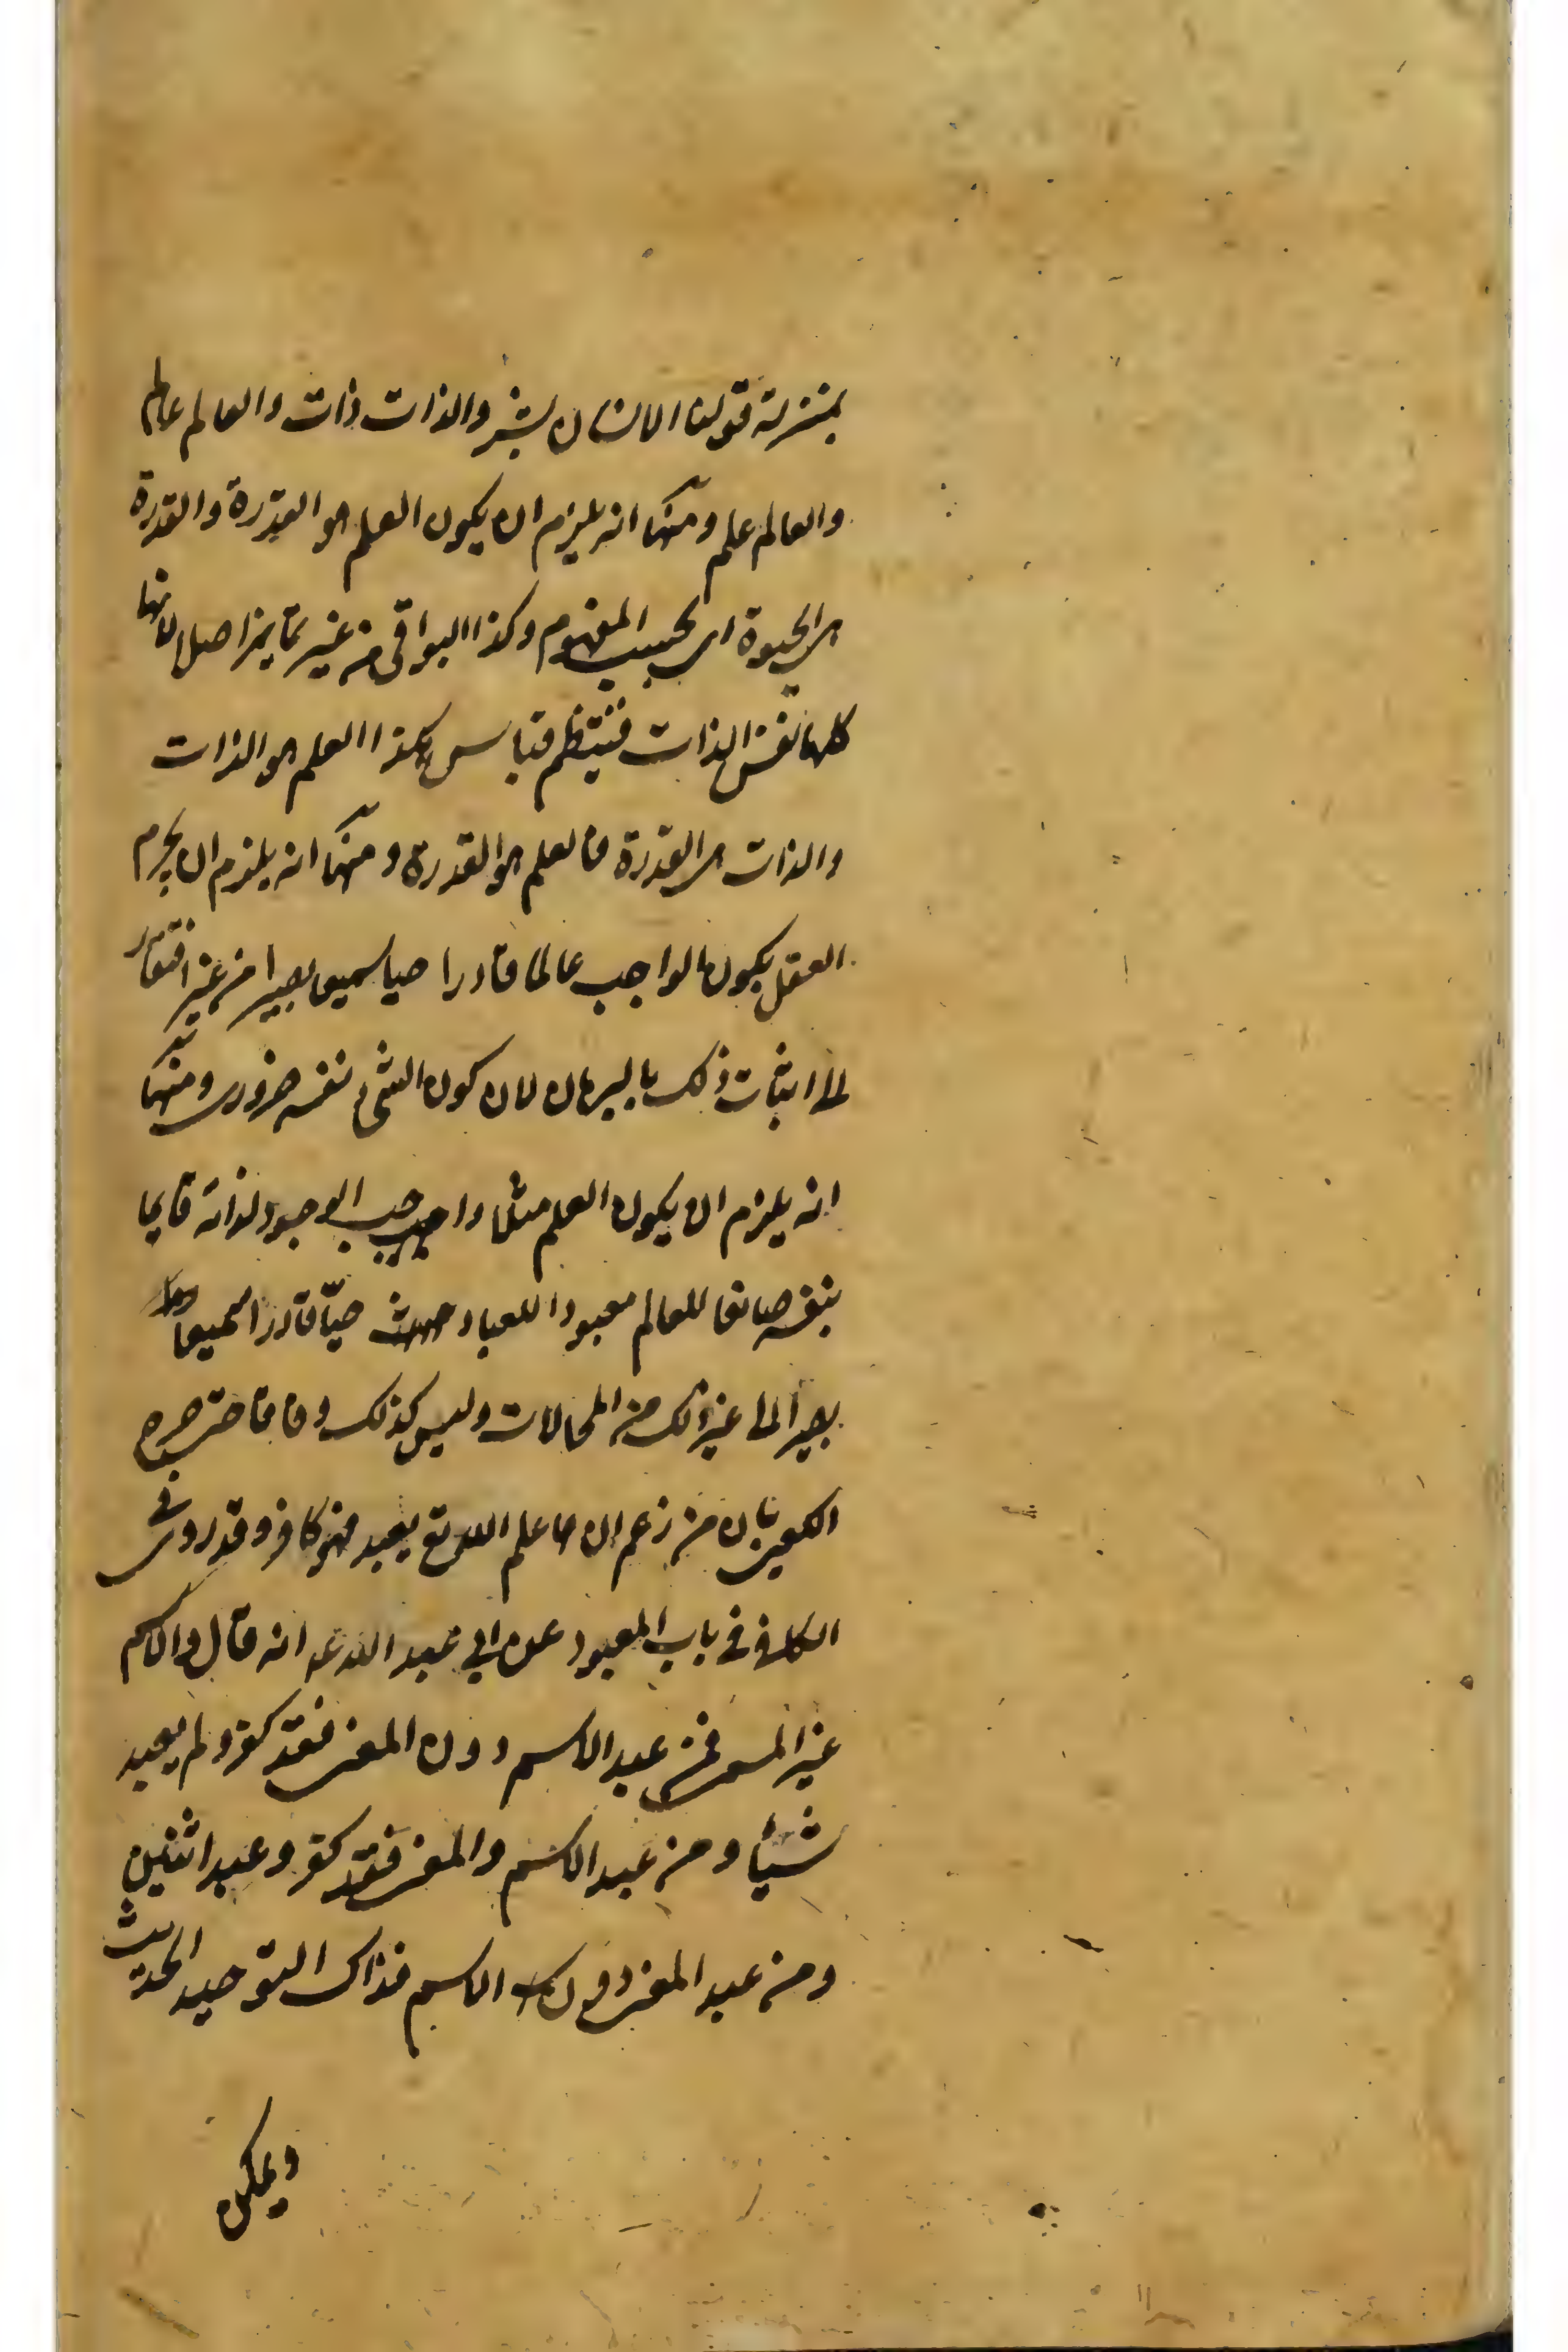 بمنزلة قولنا الانسان بشر والذات ذات والعالم عالم
والعالم علم ومنها انه يلزم ان يكون العلم هو القدرة والقدرة
هي الحيوة اي بحسب المفهوم وكذا البواقي من غير تمايز اصلا لانها
كلها نفس الذات فينتظم قياس هكذا العلم هو الذات
والذات هي القدرة فالعلم هو القدرة ومنها انه يلزم ان يجزم
العقل بكون الواجب عالما قادرا حيا سميعا بصيرا من غير افتقار
الى اثبات ذلك بالبرهان لان كون الشئ نفسه ضروري ومنها
انه يلزم ان يكون العلم مثلا واجب الوجود لذاته قايما
بنفسه صانعا للعالم معبودا للعباد حيّا قادرا سميعا
بصيرا الى غير ذلك من المحالات وليس كذلك وفاقا حتى صرح
الكعبي بان من زعم ان علم الله تع يعبد فهو كافر وقد روى في
الكافي في باب المعبود عن ابي عبد الله ع انه قال والاسم
غير المسمى فمن عبد الاسم دون المعنى فقد كفر ولم يعبد
شيئا ومن عبد الاسم والمعنى فقد كفر وعبد اثنين
ومن عبد المعنى دون الاسم فذاك التوحيد الحديث
ويمكن